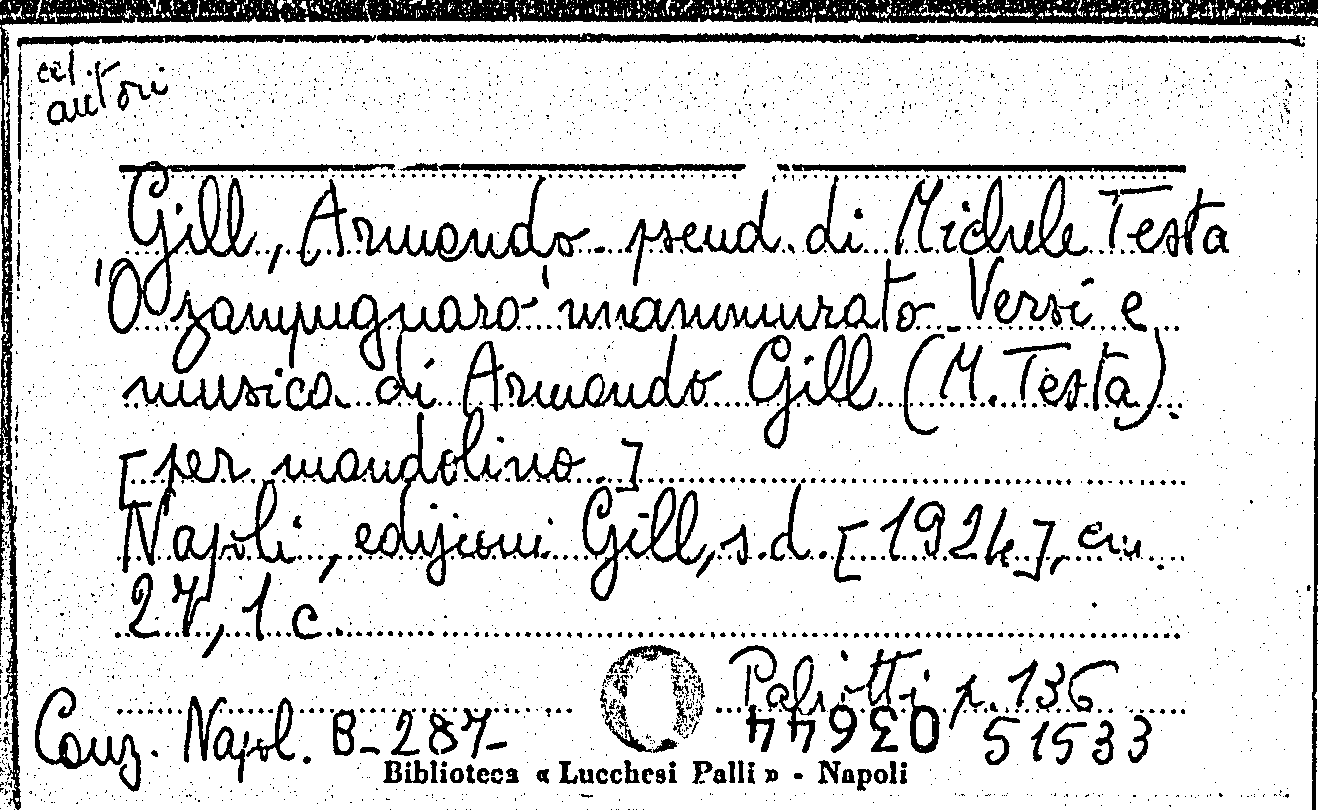 cat.
autori
Gill, Armando pseud. di Michele Testa
'O zampugnaro 'nnammurato Versi e
musica di Armando Gill (M. Testa).
[per mandolino.]
Napoli, edizioni Gill, s.d. [1924], cm.
27, 1 c.
Paliotti p. 136
Canz. Napol. B-287- 03644 51533
Biblioteca « Lucchesi Palli » - Napoli